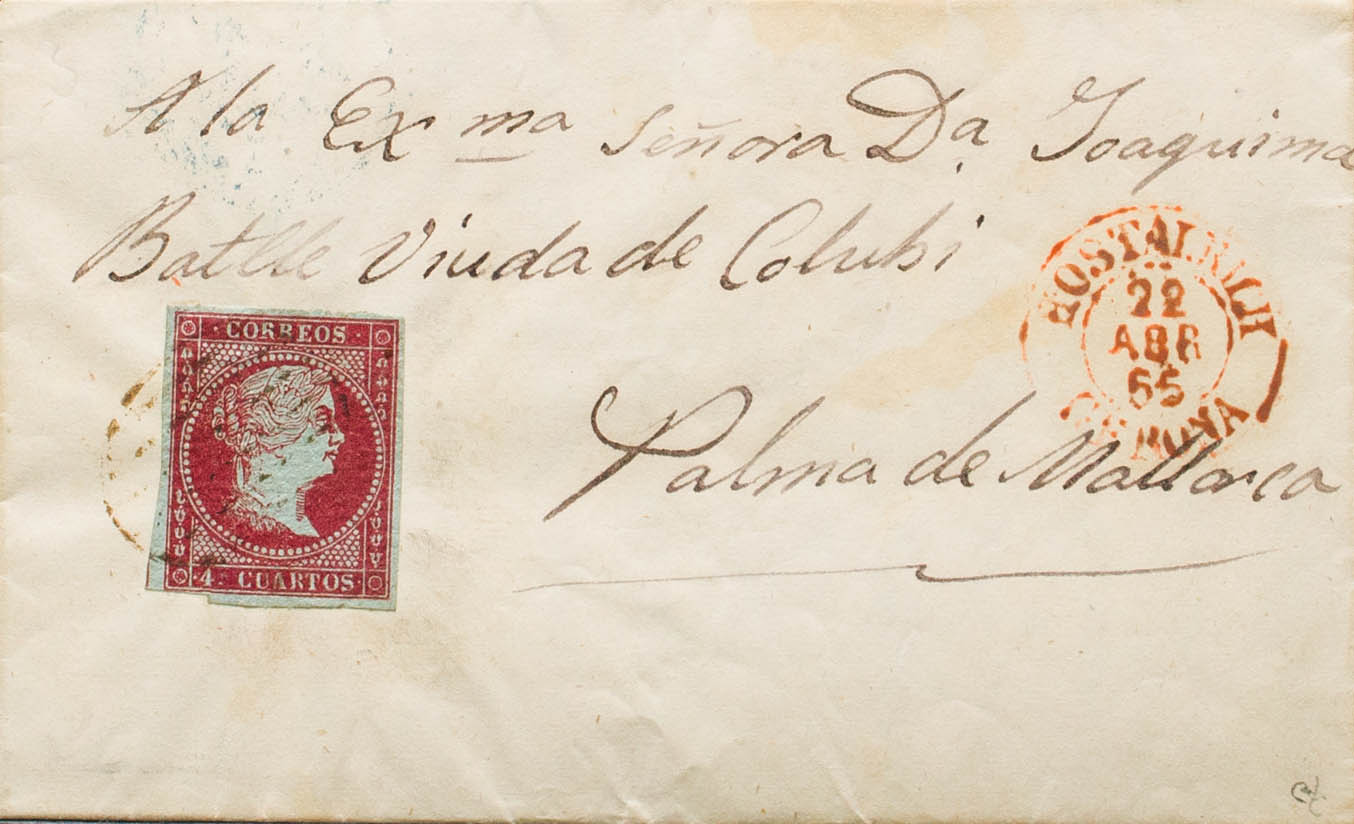 A la Exma Señora Da. Joaquima
Batlle Viuda de Colubi
Palma de Mallorca
CORREOS
4 CUARTOS
HOSTALRICH
22
ABR
55
GERONA